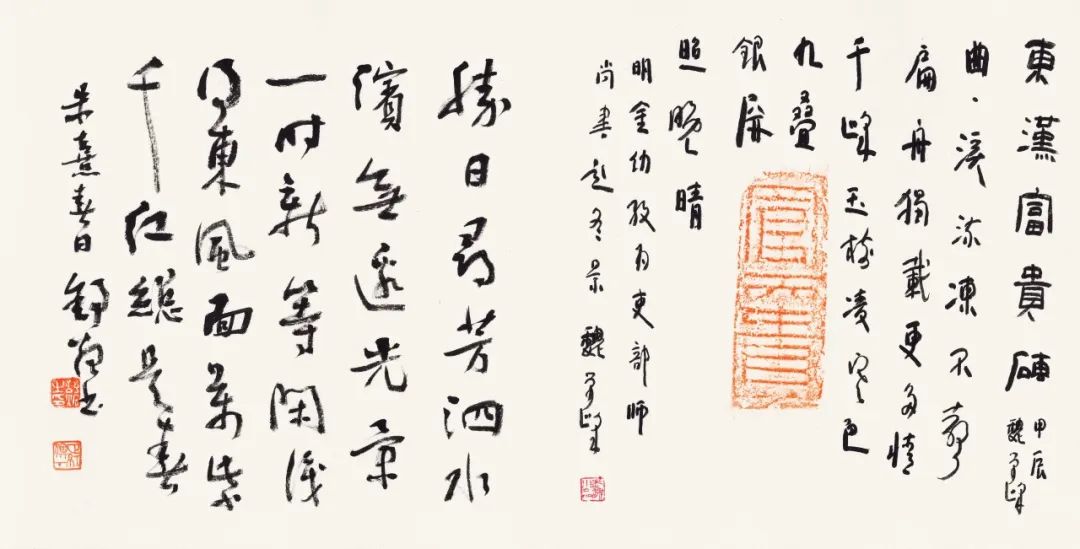 東漢富貴磚
甲辰
魏學峰
曲·溪流凍不聲
扁舟獨載更多情
千峰玉樹凌寒色
九疊
銀屏
照晚晴
明金幼孜有吏部師
尚書冬景 魏學峰
勝日尋芳泗水
濱無邊光景
一時新等閑識
得東風面萬紫
千紅總是春
朱熹春日 舒書